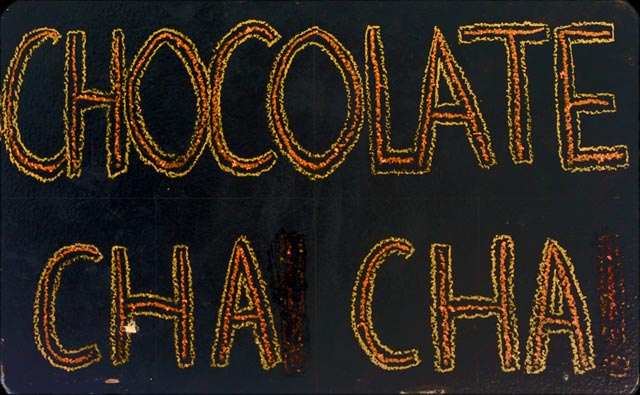 CHOCOLATE
CHA CHA